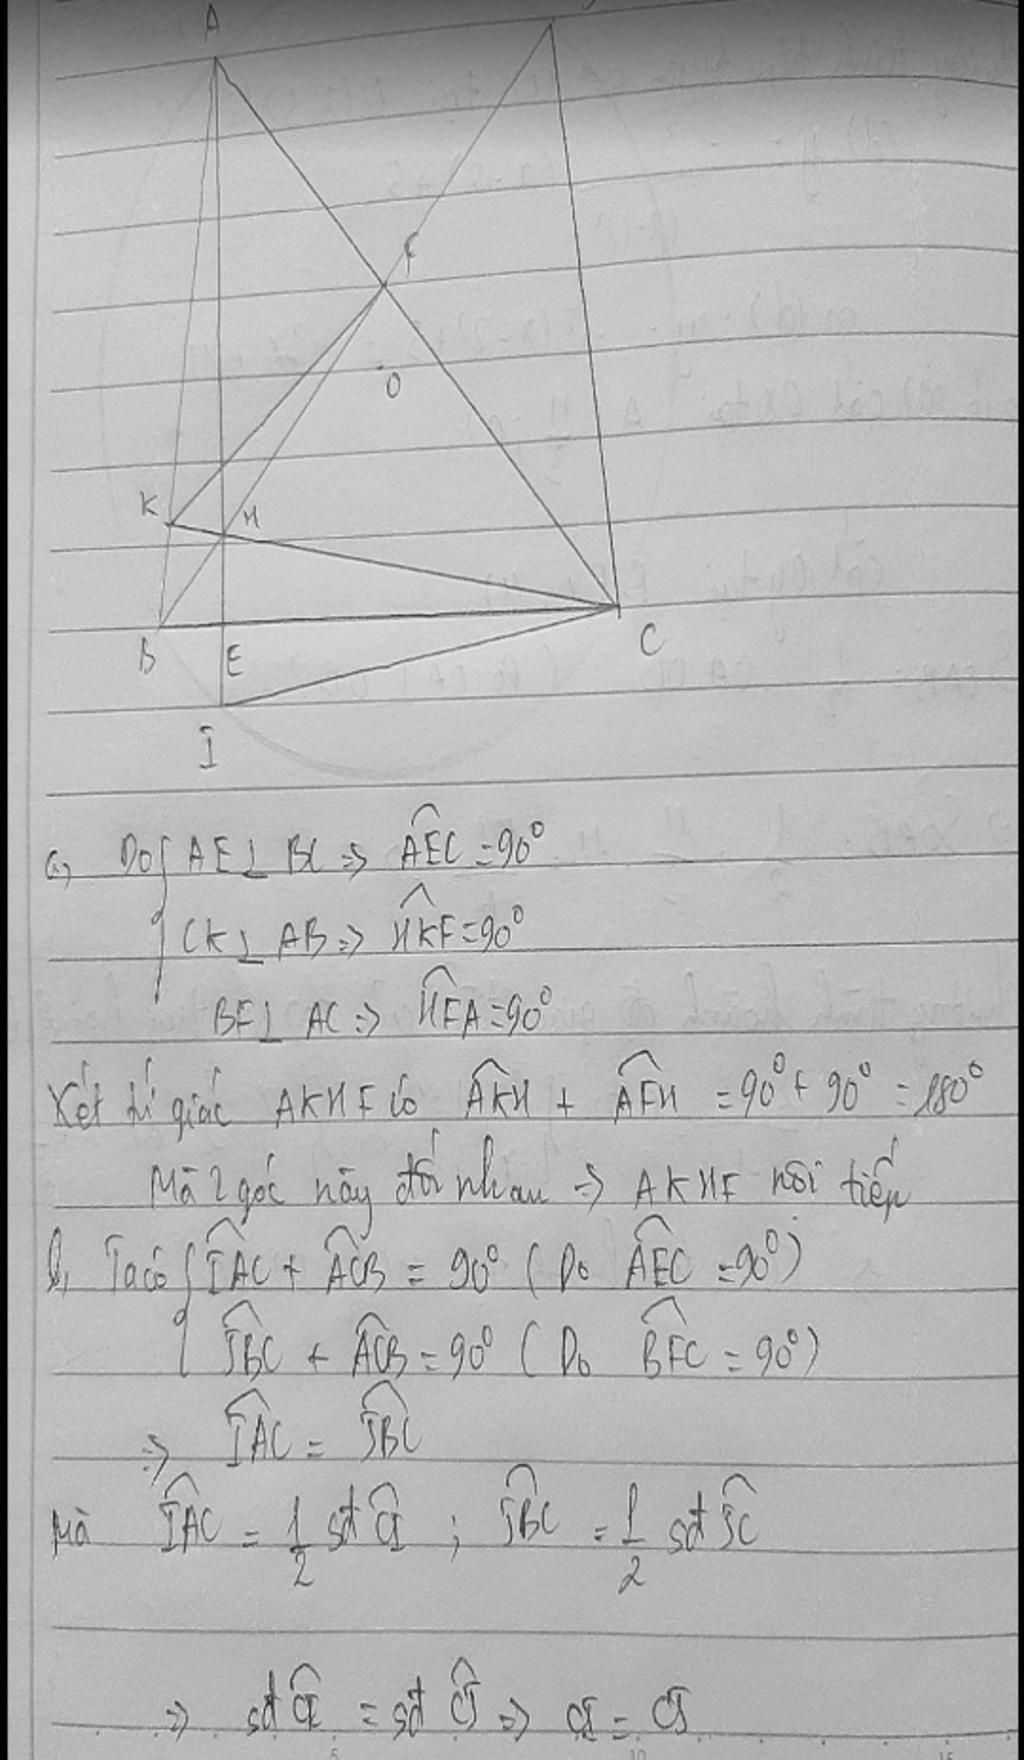 A
F
O
K
H
B
E
C
I
a, Do { AE ⊥ BC => AEC = 90°
CK ⊥ AB => HKF = 90°
BF ⊥ AC => HFA = 90°
Xét tứ giác AKHF có AKH + AFH = 90° + 90° = 180°
Mà 2 góc này đối nhau => AKHF nội tiếp
b, Ta có { IAC + ACB = 90° (Do AEC = 90°)
JBC + ACB = 90° (Do BFC = 90°)
=> IAC = JBC
Mà IAC = 1/2 sđ CI ; JBC = 1/2 sđ JC
=> sđ CI = sđ CJ => CI = CJ